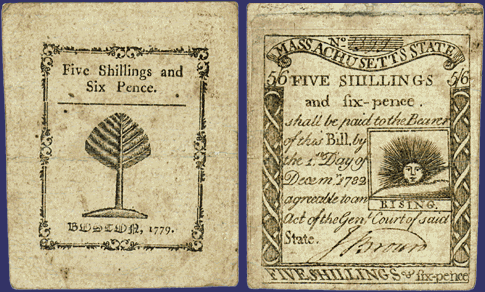 Five Shillings and
Six Pence.
BOSTON, 1779.
No
MASSACHUSETTS STATE
5/6 FIVE SHILLINGS 5/6
and six-pence.
shall be paid to the Bearer
of this Bill, by
the 1.st Day of
Decem.r 1782
agreeable to an
Act of the Gen.l Court of said
State.
RISING.
FIVE SHILLINGS & six-pence